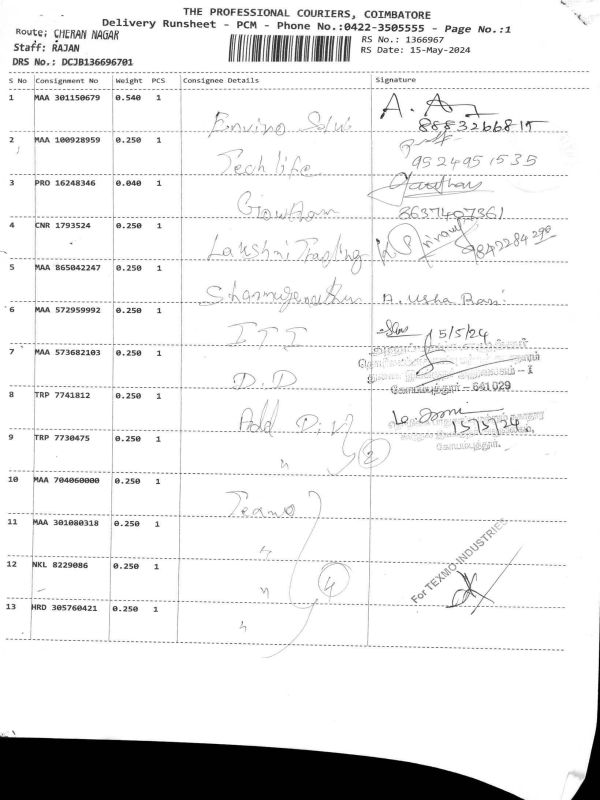 THE PROFESSIONAL COURIERS, COIMBATORE
Delivery Runsheet - PCM - Phone No.:0422-3505555 - Page No.:1
Route: CHERAN NAGAR
RS No.: 1366967
Staff: RAJAN
RS Date: 15-May-2024
DRS No.: DCJB136696701
S No Consignment No Weight PCS Consignee Details Signature
1 MAA 301150679 0.540 1
8883266815
2 MAA 100928959 0.250 1 Tech life
9524951535
3 PRO 16248346 0.040 1 Gowtham
8637407361
4 CNR 1793524 0.250 1 Lakshmi Trading
9842284290
5 MAA 865042247 0.250 1 A. Usha Rani
6 MAA 572959992 0.250 1 ITI 15/5/24
7 MAA 573682103 0.250 1 D.D
கோயம்புத்தூர் - 641 029
8 TRP 7741812 0.250 1 Add 15/5/24
கோயம்புத்தூர்.
9 TRP 7730475 0.250 1 " 2
10 MAA 704060000 0.250 1 Texmo
11 MAA 301080318 0.250 1 "
For TEXMO INDUSTRIES
12 NKL 8229086 0.250 1 " 4
13 HRD 305760421 0.250 1 "